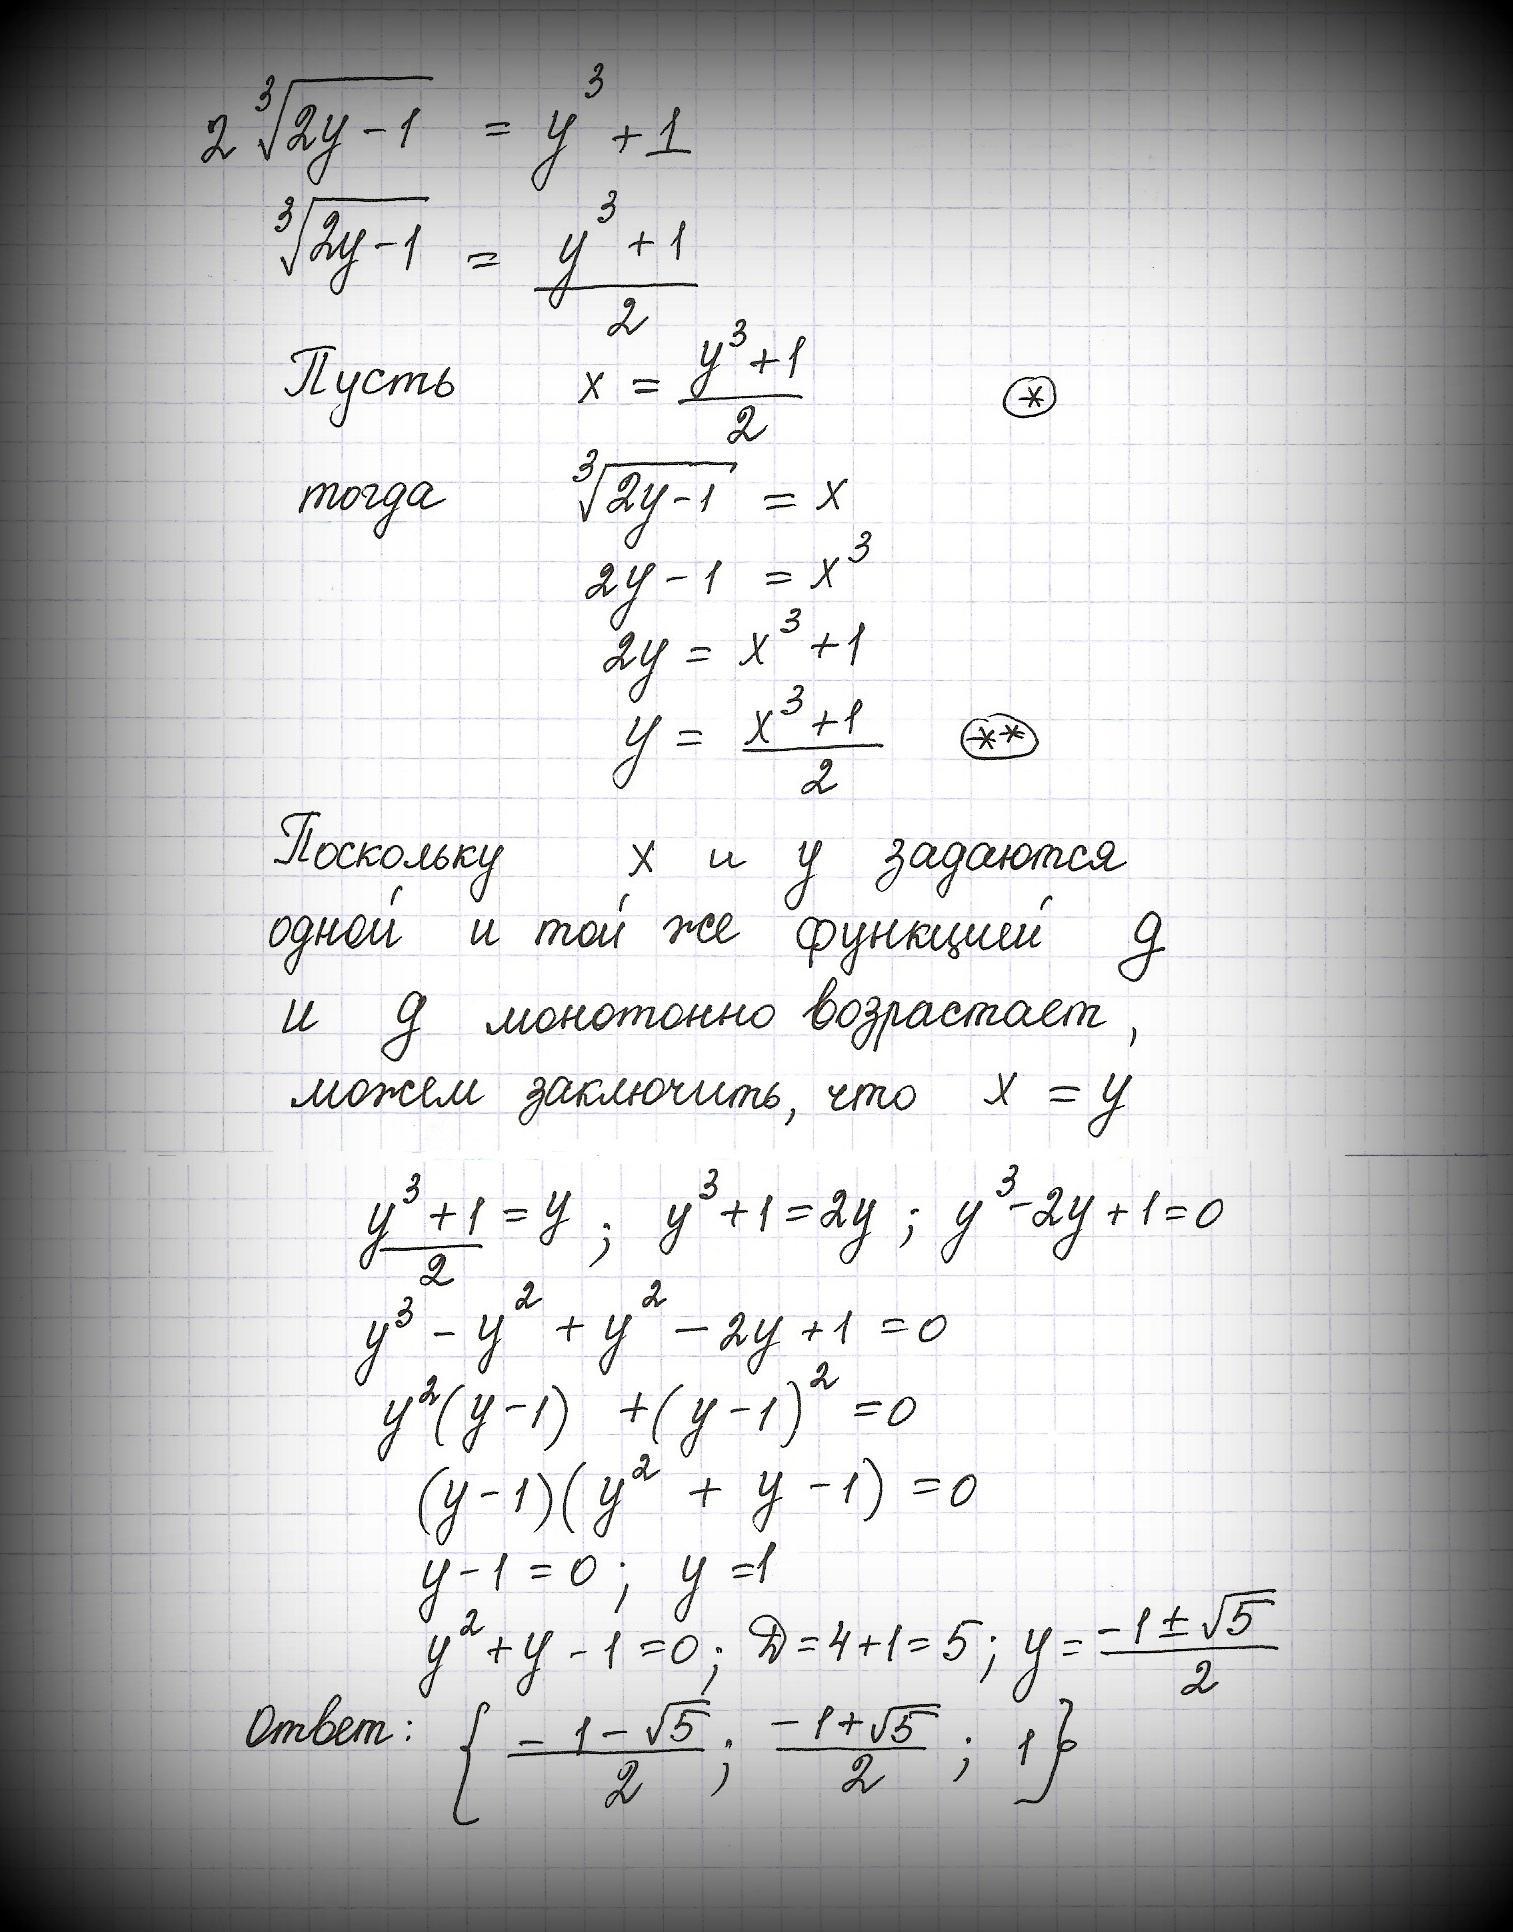 2∛(2y-1) = y³ + 1
∛(2y-1) = (y³+1)/2
Пусть x = (y³+1)/2 (*)
тогда ∛(2y-1) = x
2y-1 = x³
2y = x³+1
y = (x³+1)/2 (**)
Поскольку x и y задаются
одной и той же функцией g
и g монотонно возрастает,
можем заключить, что x = y
(y³+1)/2 = y ; y³+1=2y ; y³-2y+1=0
y³ - y² + y² - 2y+1 = 0
y²(y-1) + (y-1)² = 0
(y-1)(y² + y - 1) = 0
y-1=0; y=1
y²+y-1=0; D=4+1=5; y=(-1±√5)/2
Ответ: {(-1-√5)/2; (-1+√5)/2; 1}